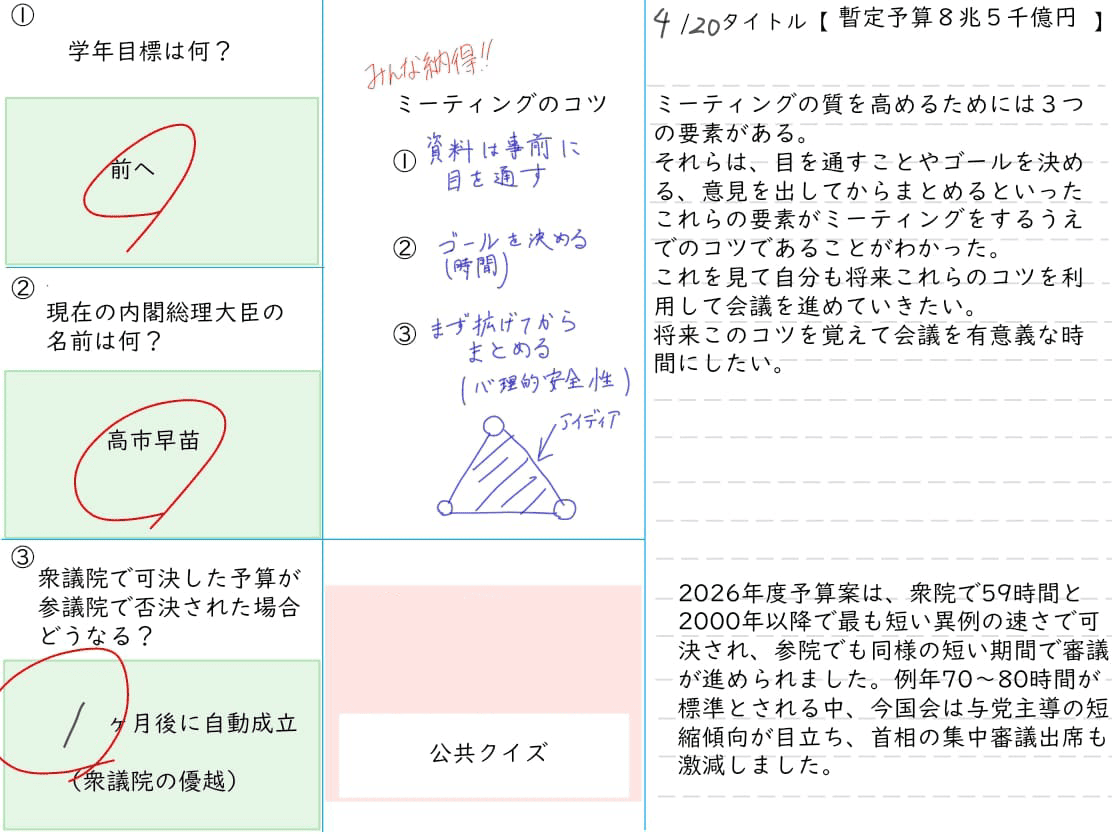 ①
学年目標は何？
前へ
②
現在の内閣総理大臣の
名前は何？
高市早苗
③
衆議院で可決した予算が
参議院で否決された場合
どうなる？
1ヶ月後に自動成立
（衆議院の優越）
みんな納得!!
ミーティングのコツ
① 資料は事前に
目を通す
② ゴールを決める
(時間)
③ まず拡げてから
まとめる
(心理的安全性)
アイディア
公共クイズ
4/20タイトル【 暫定予算８兆５千億円 】
ミーティングの質を高めるためには３つ
の要素がある。
それらは、目を通すことやゴールを決め
る、意見を出してからまとめるといった
これらの要素がミーティングをするうえ
でのコツであることがわかった。
これを見て自分も将来これらのコツを利
用して会議を進めていきたい。
将来このコツを覚えて会議を有意義な時
間にしたい。
2026年度予算案は、衆院で59時間と
2000年以降で最も短い異例の速さで可
決され、参院でも同様の短い期間で審議
が進められました。例年70～80時間が
標準とされる中、今国会は与党主導の短
縮傾向が目立ち、首相の集中審議出席も
激減しました。